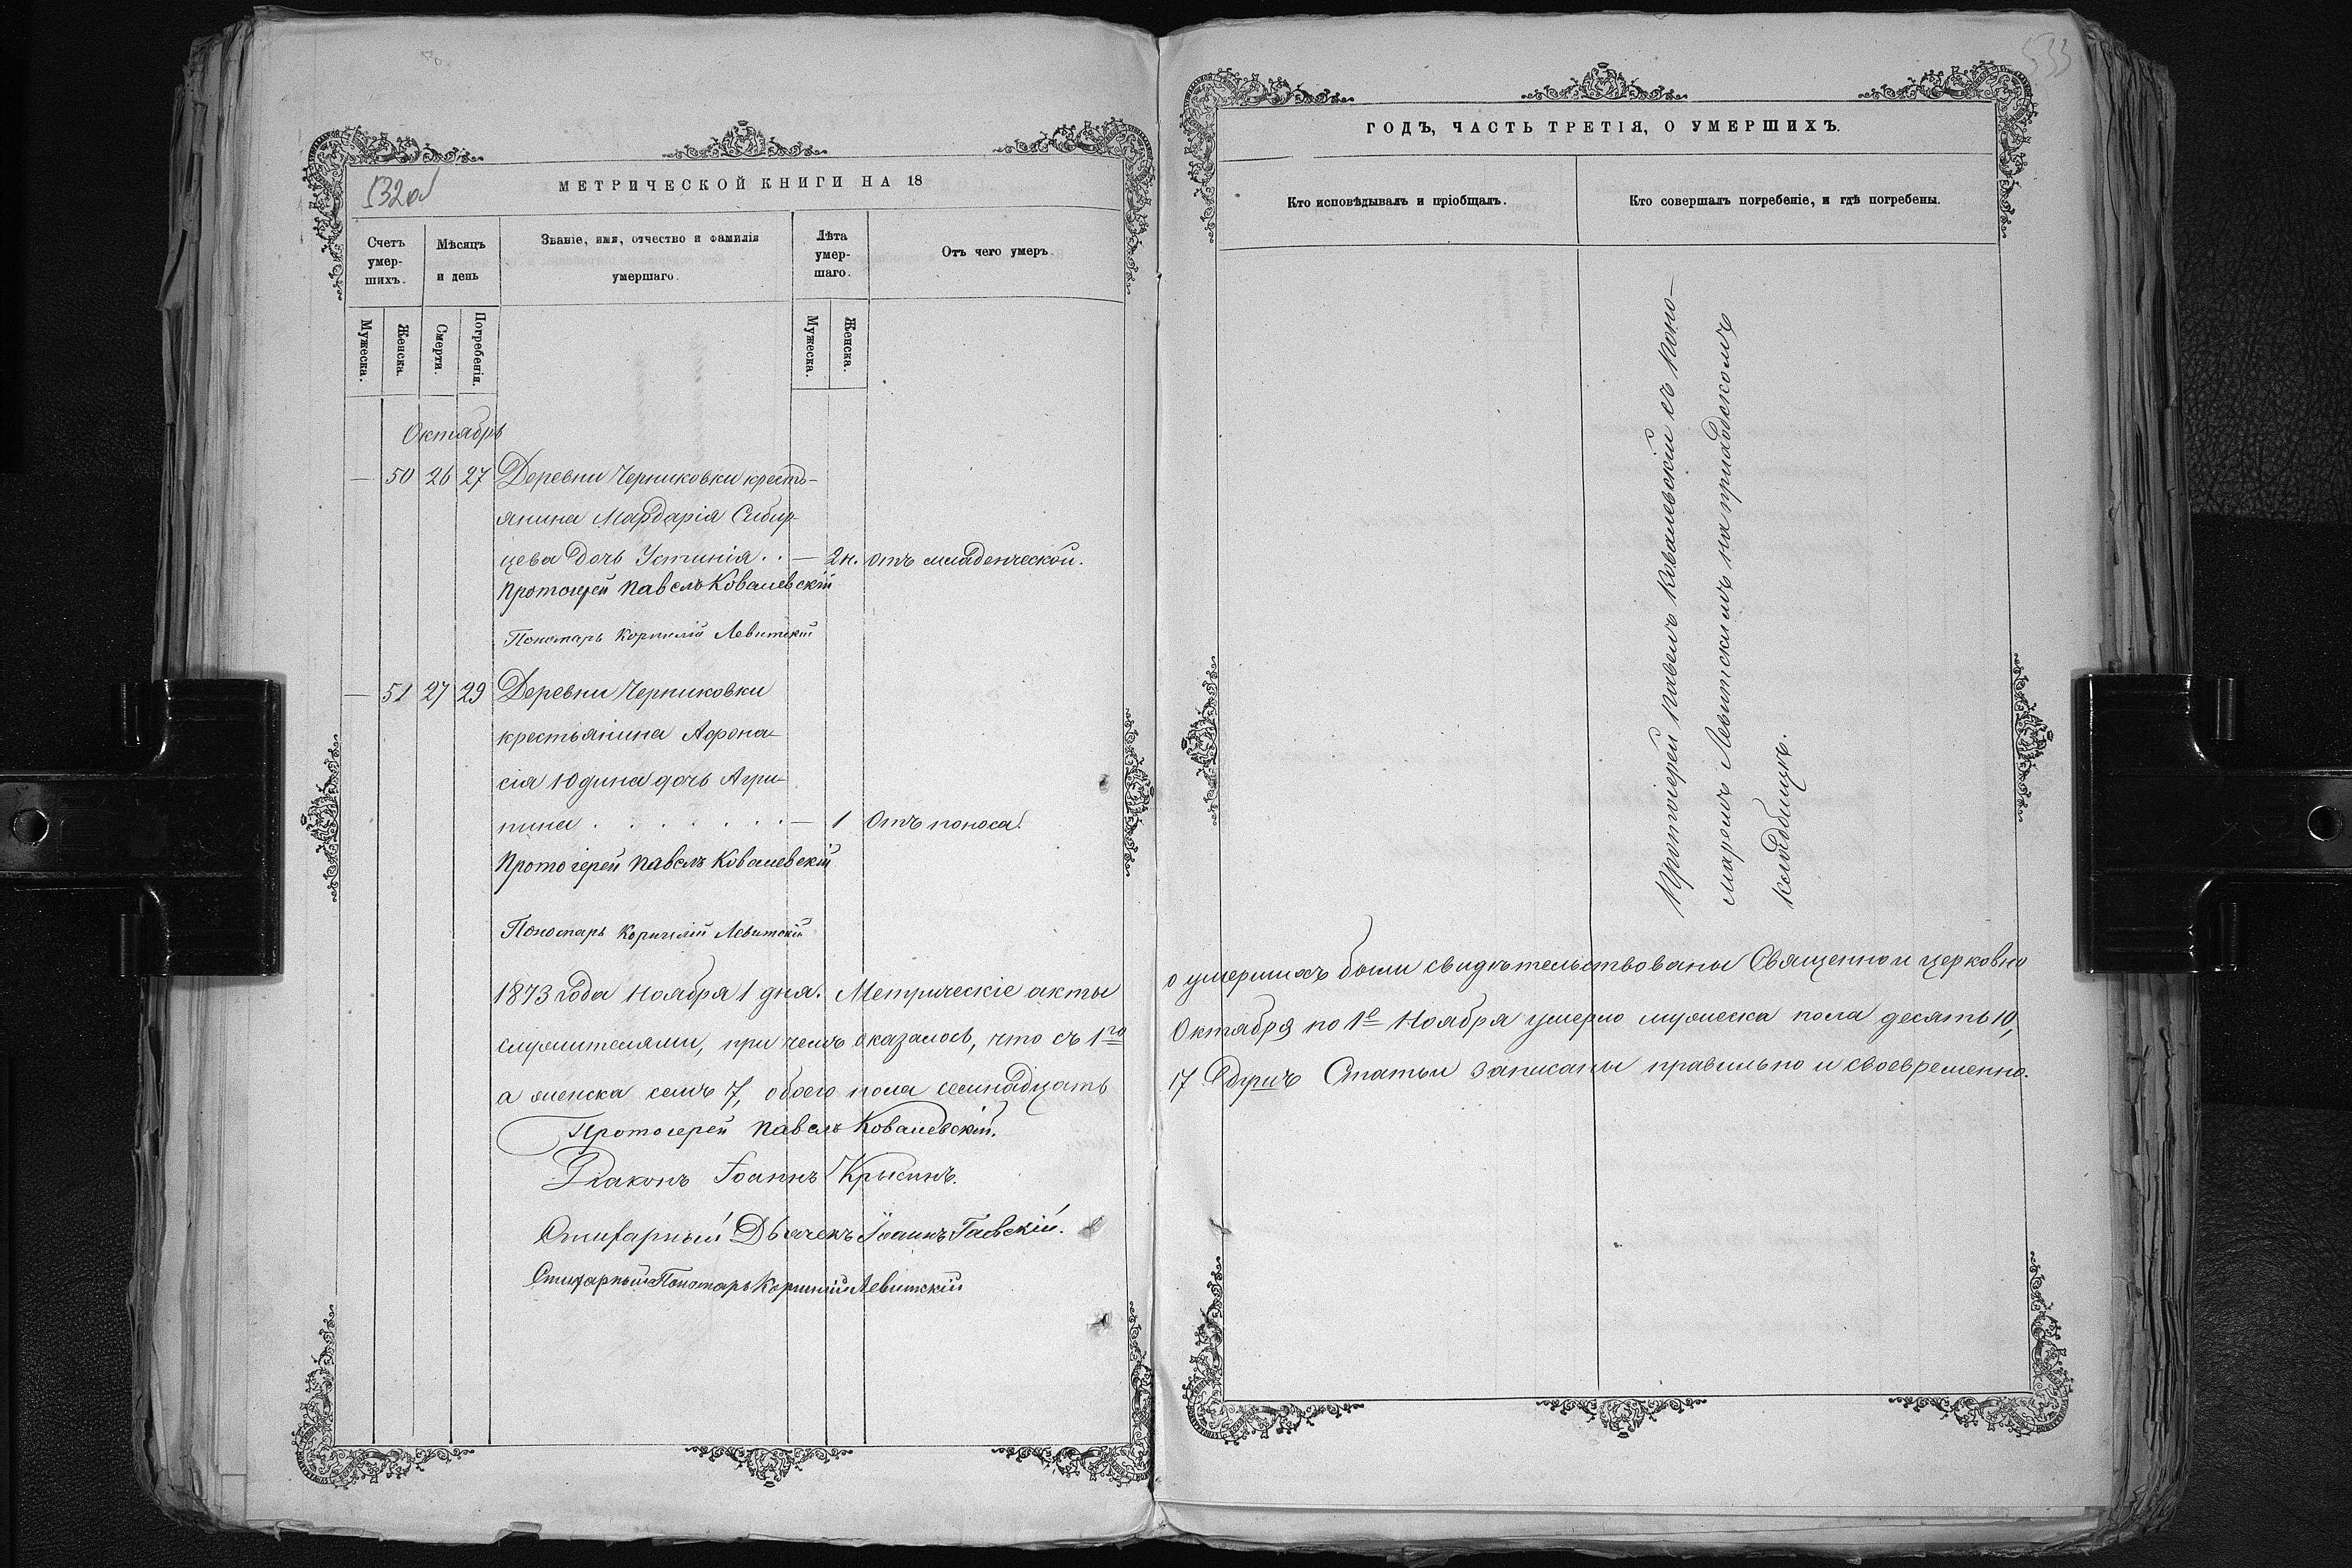 532об
МЕТРИЧЕСКОЙ КНИГИ НА 18
Счетъ умер-шихъ.
Мѣсяцъ и день
Званіе, имя, отчество и фамилія умершаго.
Лѣта умер-шаго.
Отъ чего умеръ.
Мужеска.
Женска.
Смерти.
Погребенія.
Мужеска.
Женска.
Октябрь
— 50 26 27 Деревни Черниковки кресть-
янина Мардарія Сибир-
цева дочь Устинія . . — 2н. отъ младенческой.
Протоіерей Павелъ Ковалевскій
Пономарь Корнилій Левитскій
— 51 27 29 Деревни Черниковки
крестьянина Афона-
сія Юдина дочь Агри-
пина . . . . . . . — 1 отъ поноса.
Протоіерей Павелъ Ковалевскій
Пономарь Корнилій Левитскій
1873 года Ноября 1 дня. Метрическіе акты
служителями, при чемъ оказалось, что съ 1го
а женска семь 7, обоего пола семнадцать
Протоіерей Павелъ Ковалевскій.
Діаконъ Іоаннъ Крысинъ.
Стихарный Дьячекъ Іоаннъ Гаевскій.
Стихарный Пономарь Корнилій Левитскій
533
ГОДЪ, ЧАСТЬ ТРЕТІЯ, О УМЕРШИХЪ.
Кто исповѣдывалъ и пріобщалъ.
Кто совершалъ погребеніе, и гдѣ погребены.
Протоіерей Павелъ Ковалевскій съ поно-
маромъ Левитскимъ на приходскомъ
кладбищѣ.
о умершихъ были свидѣтельствованы Священно и церковно
Октября по 1е Ноября умерло мужеска пола десять 10,
17 душъ Статьи записаны правильно и своевременно.